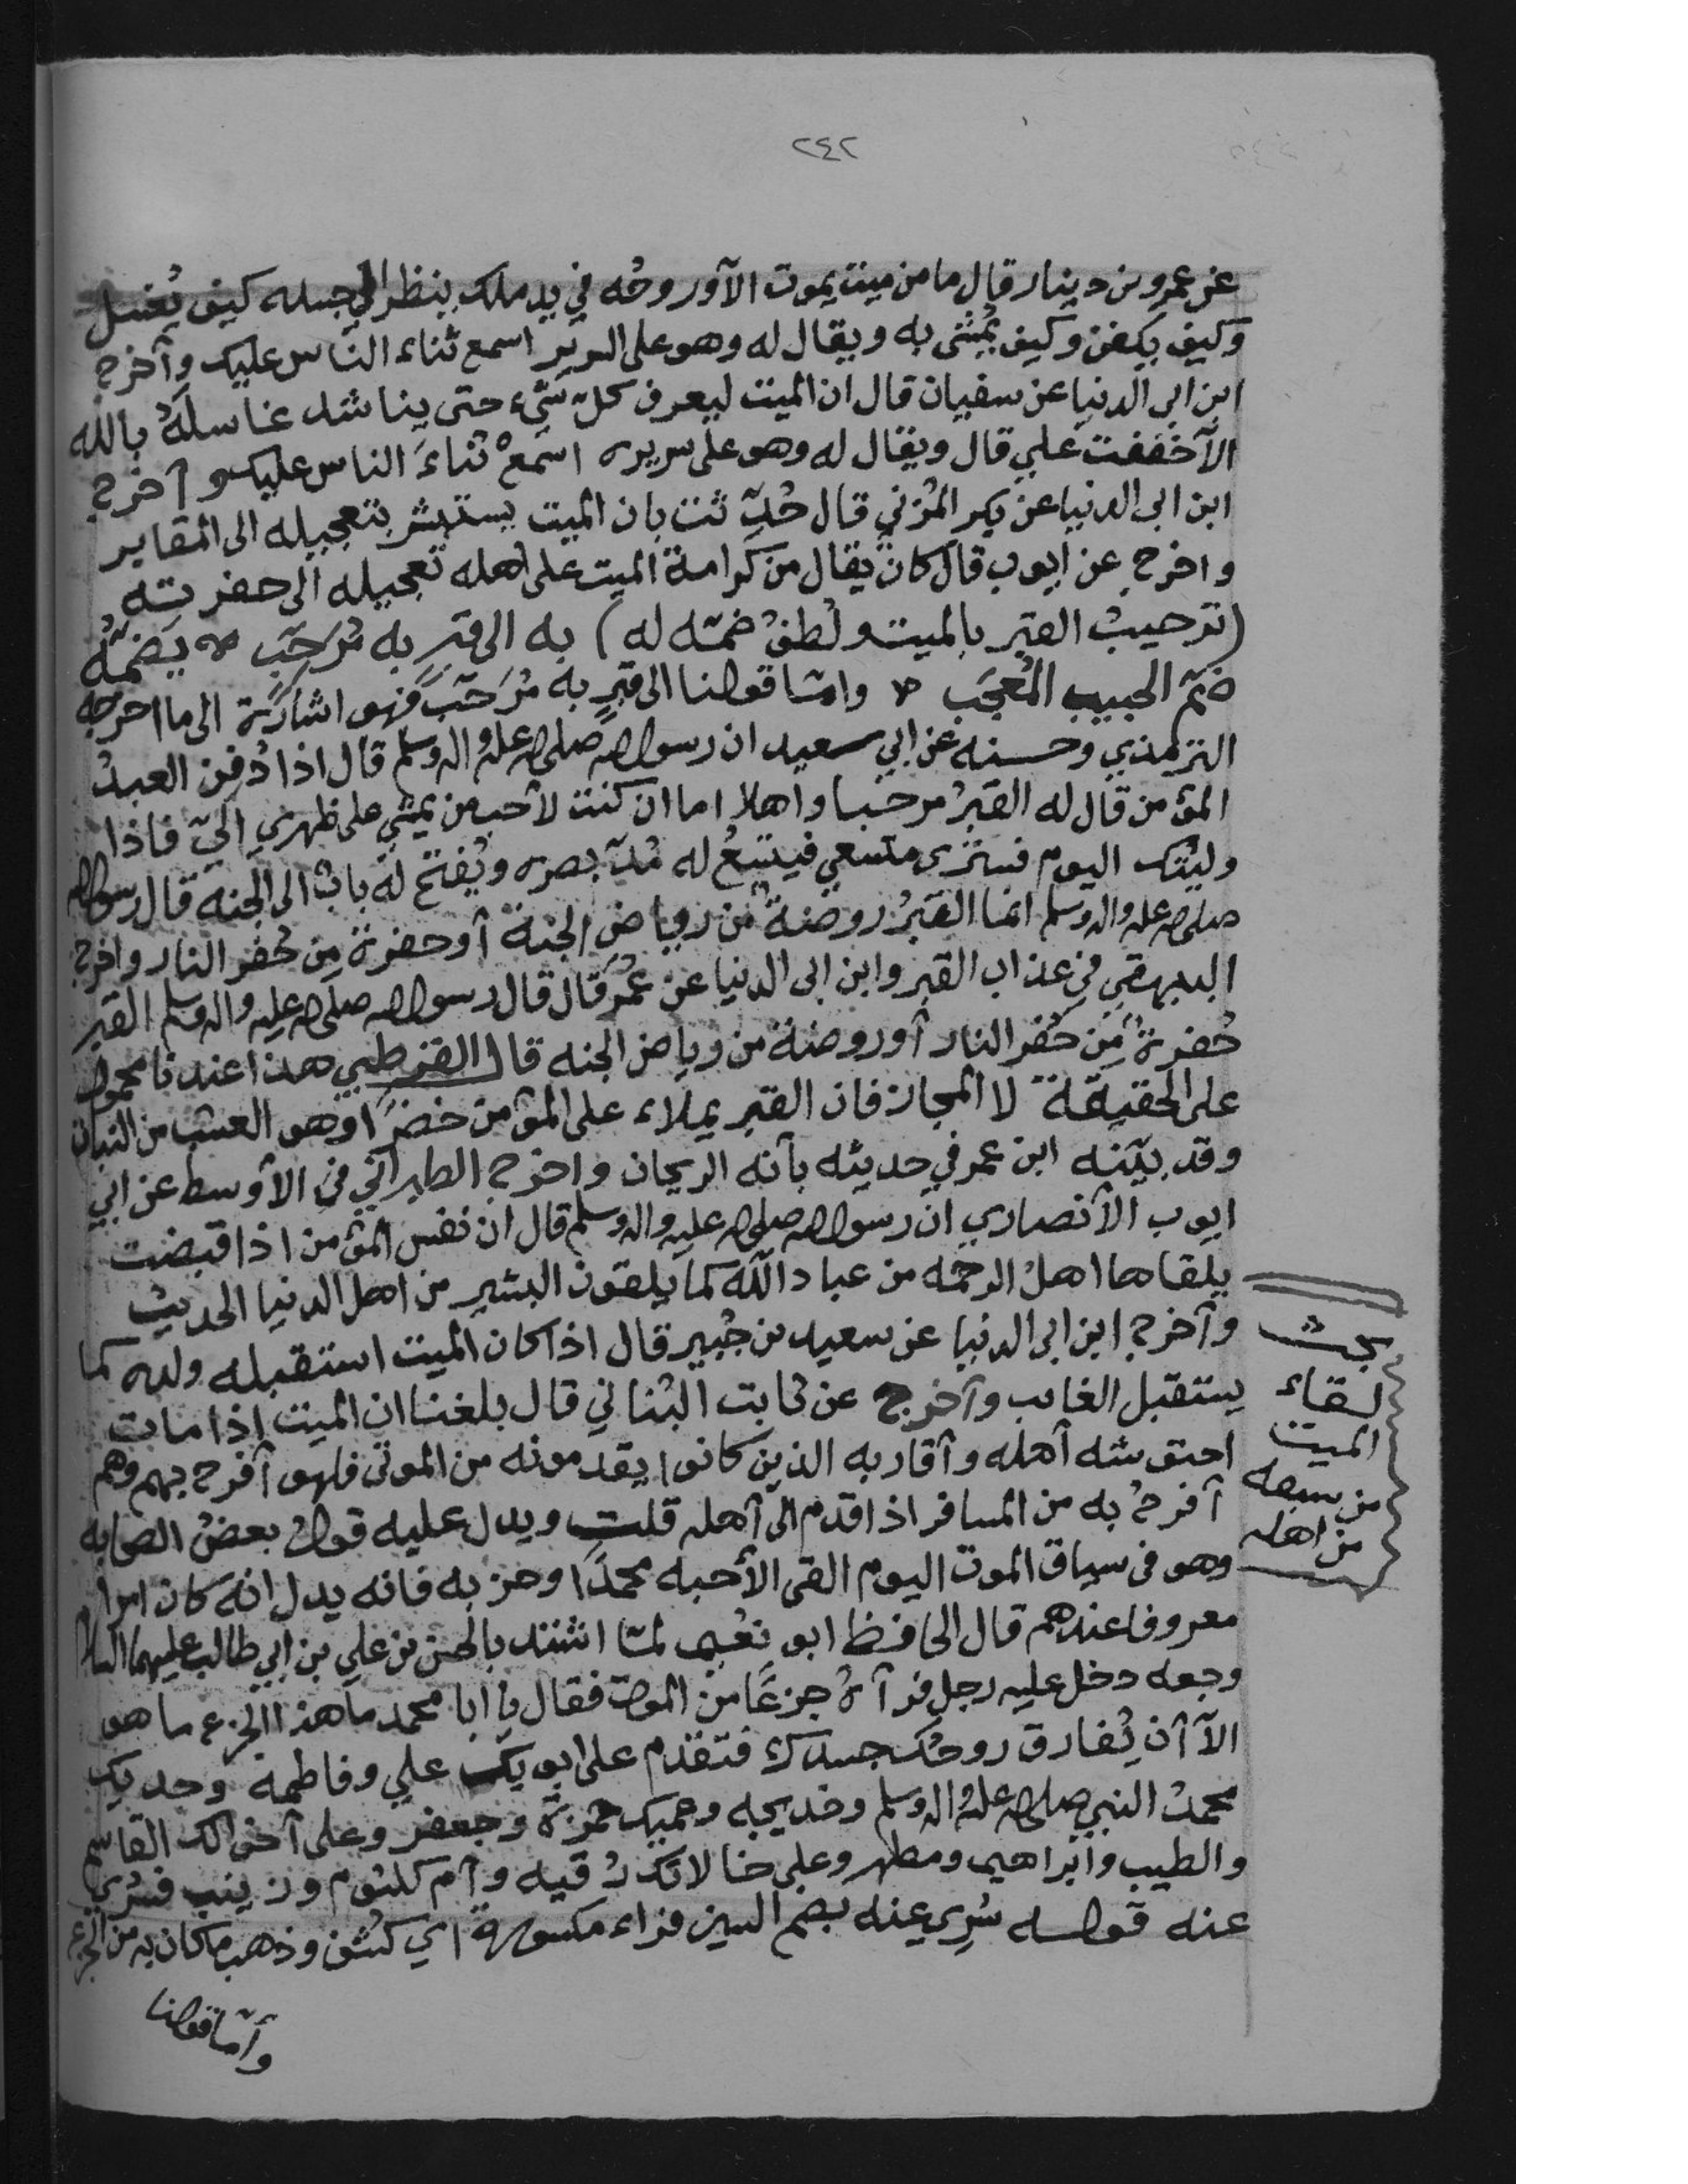 ٢٤٢
عن عمرو بن دينار قال ما من ميت يموت الآ وروحُه في يد ملك ينظر الى جسده كيف يُغسل
وكيف يكفن وكيف يُمشى به ويقال له وهو على السرير اسمع ثناء الناس عليك وآخرج
ابن ابي الدنيا عن سفيان قال ان الميت ليعرف كلّ شىء حتى يناشد غاسلَهُ بالله
الآخففت علي قال ويقال له وهو على سريره اسمعْ ثناءَ الناس عليك و آخرج
ابن ابى الدنيا عن بكر المُزني قال حُدّثت بان الميت يستبشر بتعجيله الى المقابر
واخرج عن ايوب قال كان يقال من كرامة الميت على اهله تعجيله الى حفرته
(ترحيبُ القبر بالميت ولُطفُ ضمّه له) به الى قبرٍ به مُرَحّبٍ يضمّهُ
ضمّ الحبيب المُعجَب وامّا قولنا الى قبرٍ به مُرَحّبٍ فهو اشارة الى ما اخرجه
الترمذي وحسنه عن ابي سعيد ان رسول الله صلى الله عليه واله وسلم قال اذا دُفِن العبدُ
المؤمن قال له القبرُ مرحَبا واهلا اما ان كنت لاحب من يمشي على ظهري اليّ فاذا
وليتك اليوم فسترى متسعي فيتسعُ له مُدّ بصره ويُفتح له بابٌ الى الجنه قال رسول الله
صلى الله عليه واله وسلم انما القبرُ روضةٌ من رياض الجنة آو حفرة مِن حُفر النار واخرج
البيهقي في عذاب القبر وابن ابى الدنيا عن عُمر قال قال رسول الله صلى الله عليه واله وسلم القبر
حُفرةٌ مِن حُفر النار آو روضة من رياض الجنه قال القرطبي هذا عندنا محمول
على الحقيقة لا المجاز فان القبر يملاء على المؤمن خضَراً وهو العشب من النبات
وقد بيّنه ابن عمر في حديثه بآنه الريحان واخرج الطبراني في الآوسط عن ابي
ايوب الآنصاري ان رسول الله صلى الله عليه واله وسلم قال ان نفس المؤمن اذا قبضت
يلقاها اهلُ الرحمه من عباد الله كما يلقون البشير من اهل الدنيا الحديث
وآخرج ابن ابى الدنيا عن سعيد بن جُبير قال اذا كان الميت استقبله ولده كما
يستقبل الغايب وآخرج عن ثابت البُناني قال بلغنا ان الميت اذا مات
احتوشه آهله وآقاربه الذين كانوا يقدمونه من الموتى فلهو آفرح بهم وهم
آفرحُ به من المسافر اذا قدم الى آهله قلت ويدل عليه قولُ بعضُ الصحابه
وهو في سياق الموت اليوم القى الآحبه محمدَا وحزبه فانه يدل انه كان امرا
معروفا عندهم قال الحافظ ابو نُعيم لمّا اشتد بالحسن بن علي بن ابي طالب عليهما السلام
وجعه دخل عليه رجل فرآهُ جزعًا من الموت فقال يا ابا محمد ما هذا الجزع ما هو
الآ آن تُفارق روحُك جسدك فتقدم على ابويك علي وفاطمه وجديك
محمدٌ النبي صلى الله عليه واله وسلم وخديجه وعميك حمزة وجعفر وعلى آخوالك القاسم
والطيب وآبراهيم ومطهر وعلى خالاتك رُقيه وآم كلثوم وزينب فسُري
عنه قوله سُرِي عنه بضم السين فراء مكسورة اي كُشف وذهب ما كان به من الجزع
وآمّا قولنا
بحث
لقاء
الميت
من سبقه
من اهله